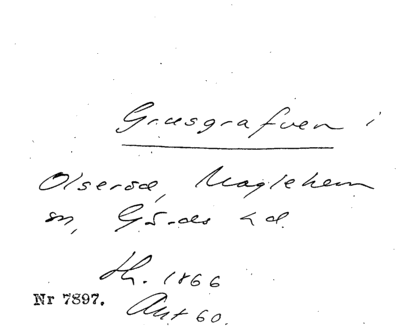 Grusgrafven i
Olseröd, Maglehem
sn, Gärds hd.
th. 1866
Nr 7897.
Ant 60.